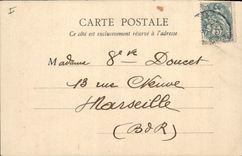 I
CARTE POSTALE
Ce côté est exclusivement réservé à l'adresse
Madame Vve Doucet
13 rue Neuve
Marseille
(BdR)